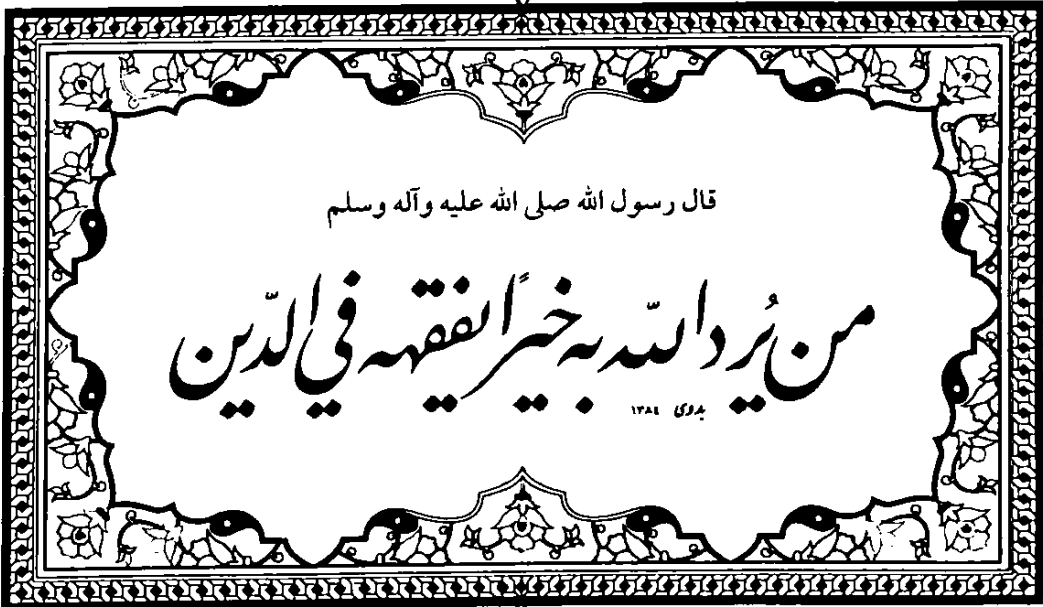 قال رسول الله صلى الله عليه وآله وسلم
من يُرد اللّه به خيرًا يفقهه في الدّين
بدوى ١٣٨٤